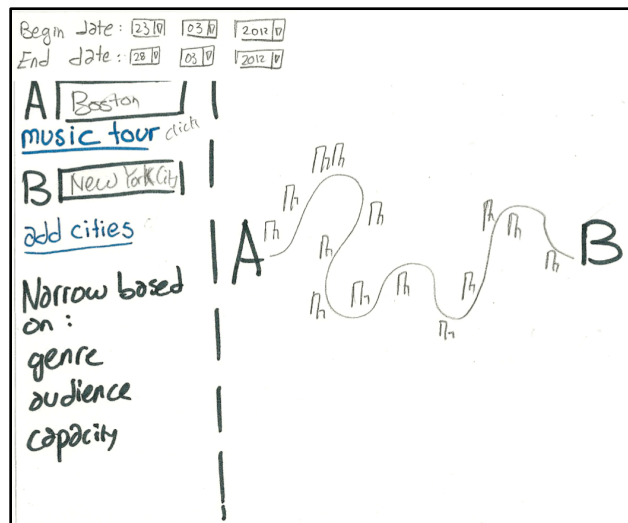 Begin date: 23 03 2012
End date: 28 03 2012
A Boston
music tour click
B New York City
add cities
Narrow based
on:
genre
audience
capacity
A
B